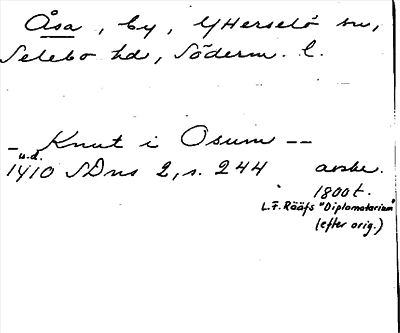 Åsa, by, Ytterselö sn,
Selebo hd, Söderm. l.
_ Knut i Osum --
u.d.
1410 SDns 2, s. 244 avskr.
1800t.
L.F. Rääfs "Diplomatarium"
(efter orig.)